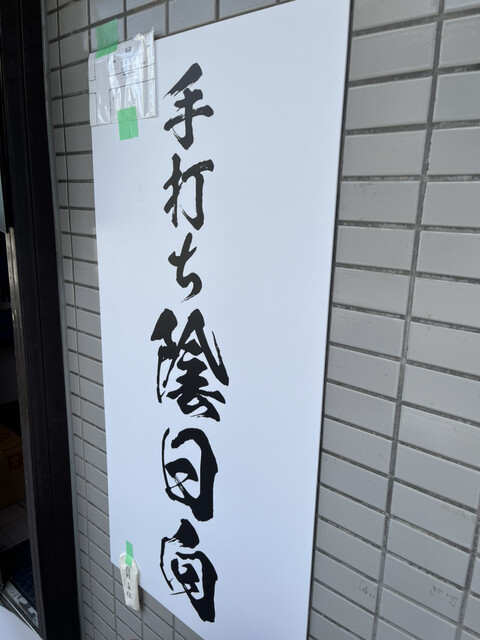 手打ち陰日向